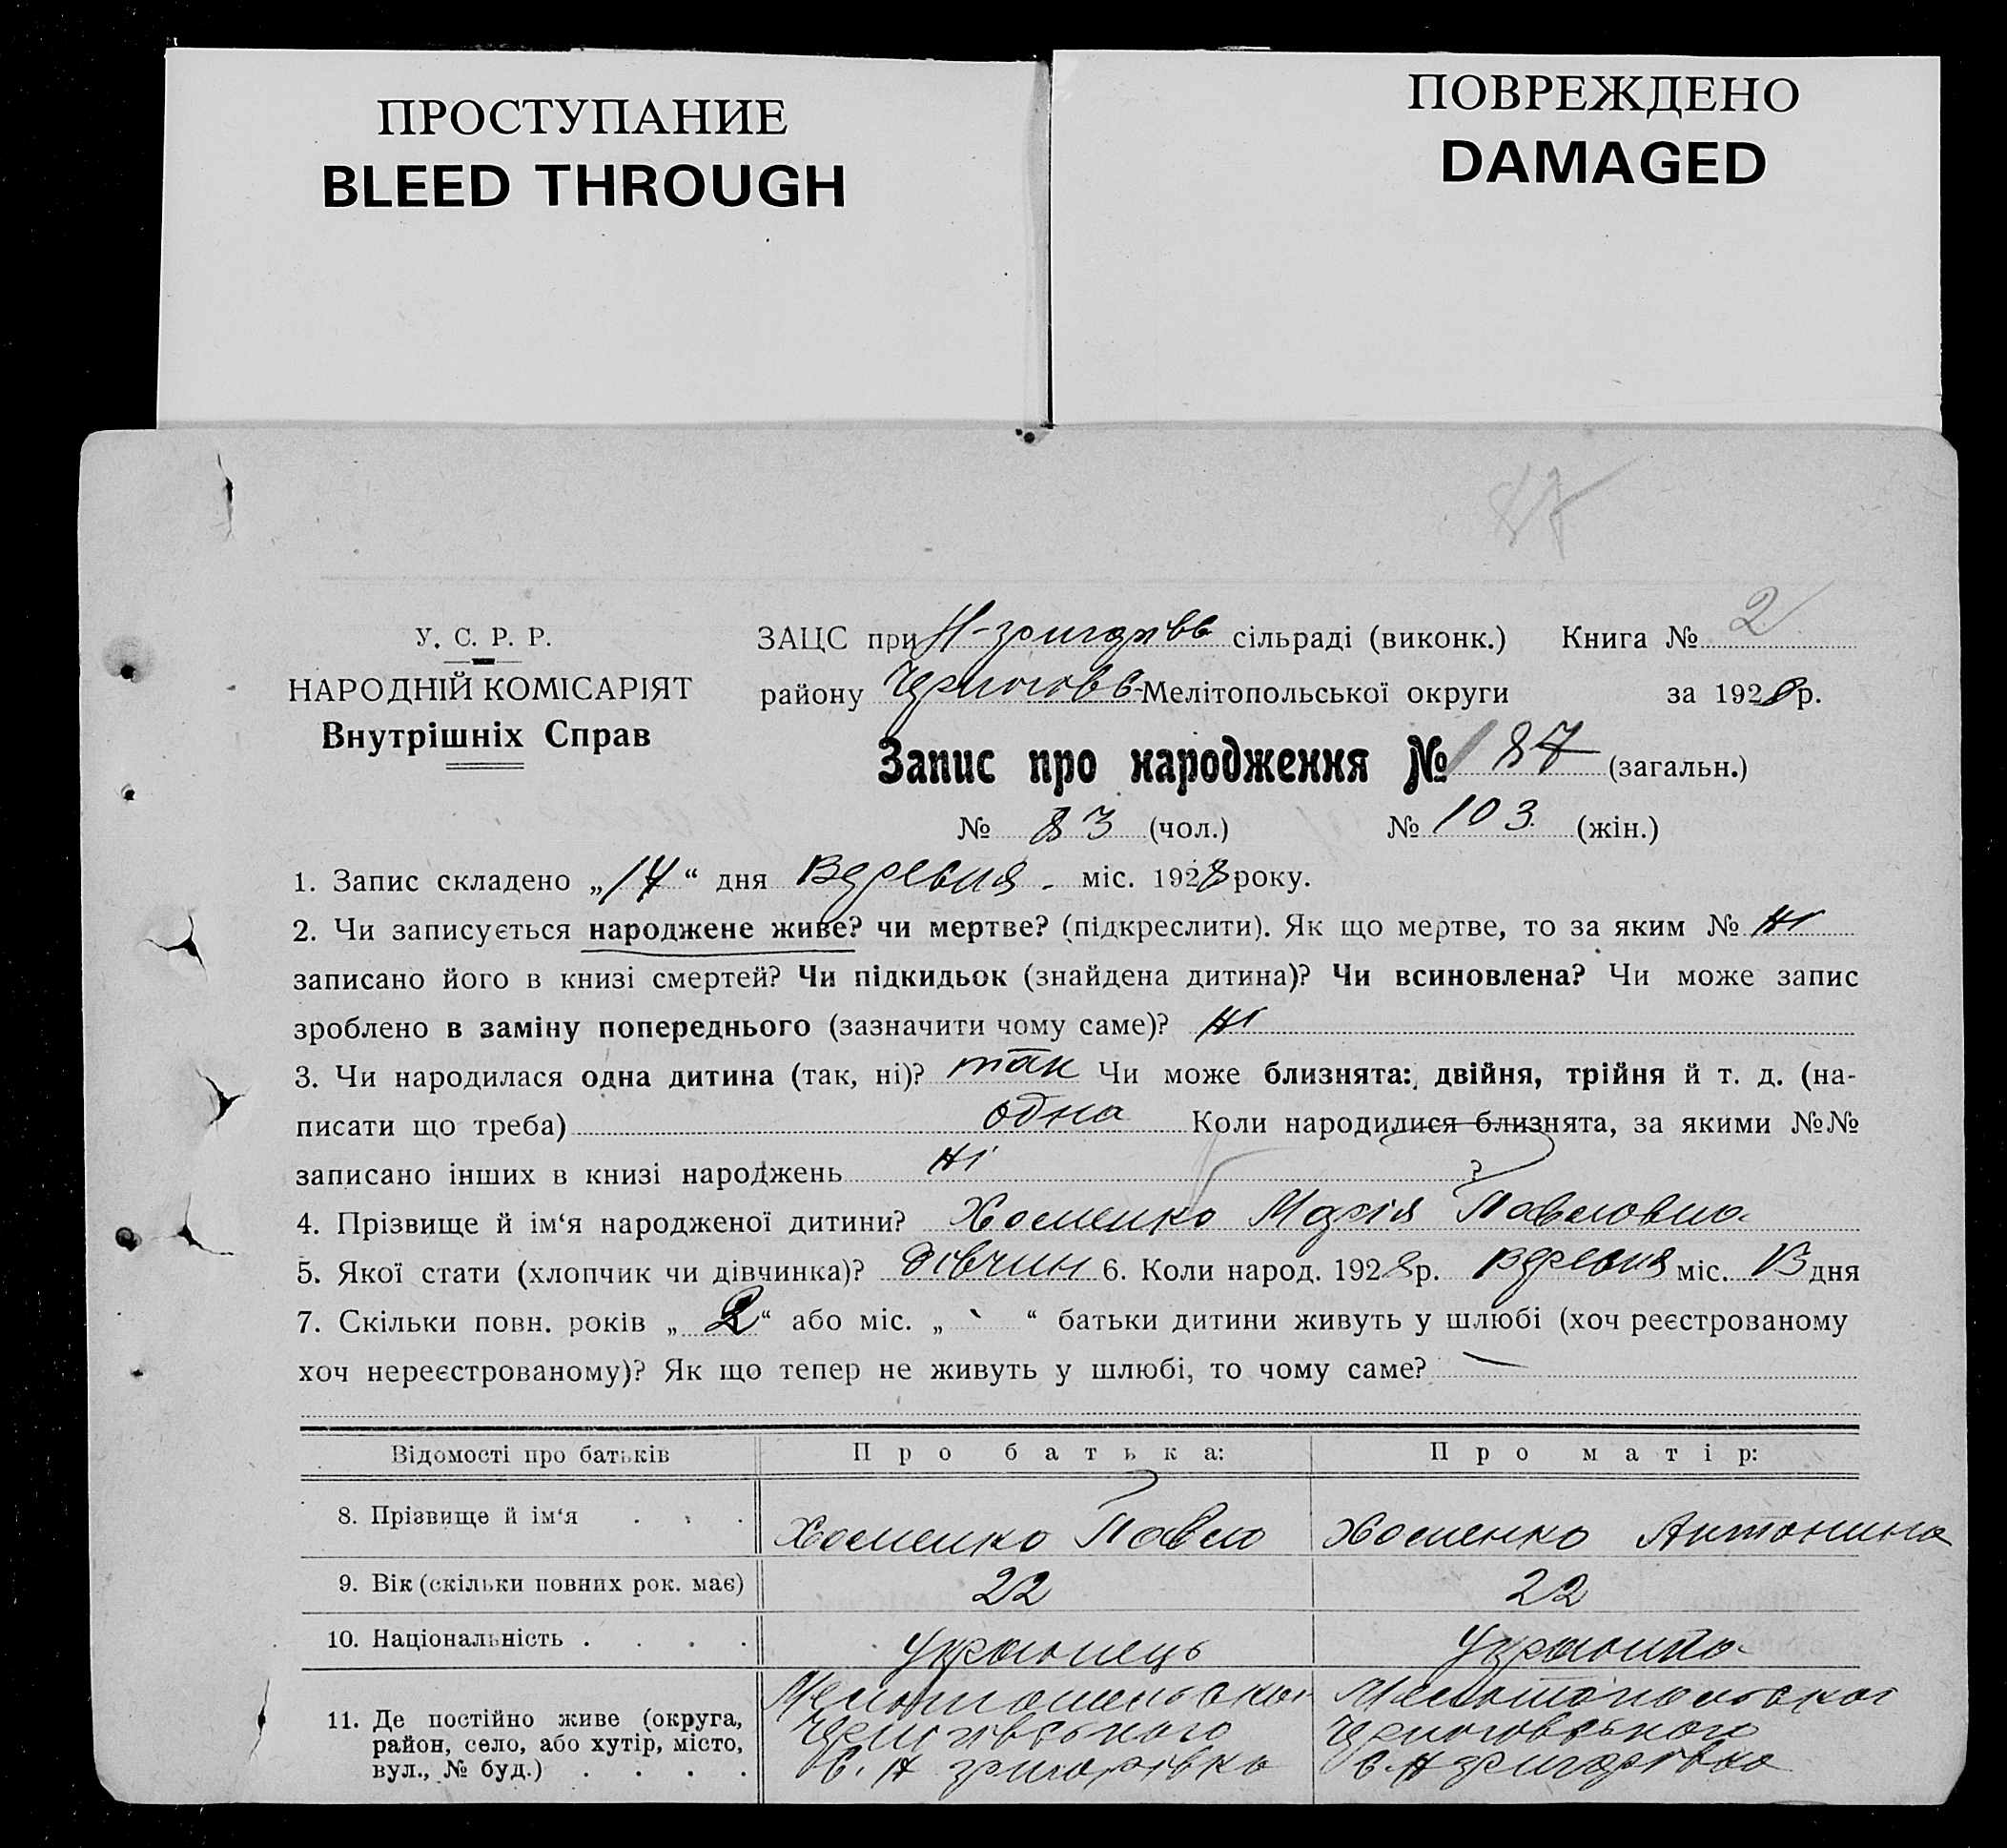 ПРОСТУПАНИЕ
BLEED THROUGH
ПОВРЕЖДЕНО
DAMAGED
87
У. С. Р. Р.
НАРОДНІЙ КОМІСАРІЯТ
Внутрішніх Справ
ЗАЦС при Н-григорівс сільраді (виконк.) Книга № 2
району Чернигов Мелітопольської округи за 1928 р.
Запис про народження № 187 (загальн.)
№ 83 (чол.) № 103 (жін.)
1. Запис складено „14“ дня Вересня міс. 1928 року.
2. Чи записується народжене живе? чи мертве? (підкреслити). Як що мертве, то за яким № ні
записано його в книзі смертей? Чи підкидьок (знайдена дитина)? Чи всиновлена? Чи може запис
зроблено в заміну попереднього (зазначити чому саме)? ні
3. Чи народилася одна дитина (так, ні)? так Чи може близнята: двійня, трійня й т. д. (на-
писати що треба) одна Коли народилися близнята, за якими №№
записано інших в книзі народжень ні ?
4. Прізвище й ім‘я народженої дитини? Хоменко Марія Павловна
5. Якої стати (хлопчик чи дівчинка)? дівчин 6. Коли народ. 1928 р. Вересня міс. 13 дня
7. Скільки повн. років „2“ або міс. „ “ батьки дитини живуть у шлюбі (хоч реєстрованому
хоч нереєстрованому)? Як що тепер не живуть у шлюбі, то чому саме? —
Відомості про батьків Про батька: Про матір:
8. Прізвище й ім‘я . . . Хоменко Павло Хоменко Антонина
9. Вік (скільки повних рок. має) 22 22
10. Національність . . . . Украинець Украинка
11. Де постійно живе (округа, район, село, або хутір, місто, вул., № буд.) . . . .
Мелитопольскои Мелитопольскоі
Чернігівського Черниговського
с. Н григорівка с. Н григорівка